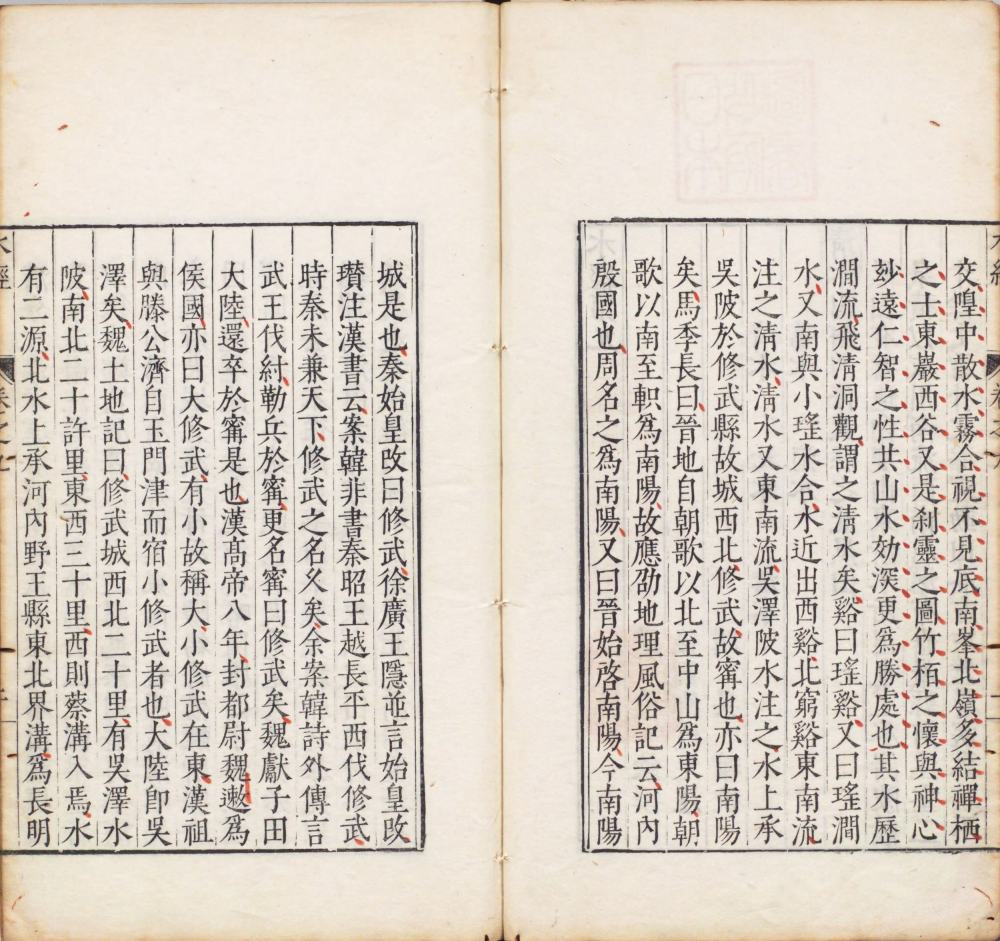 交隍中散水霧合視不見底南峯北嶺多結禪栖
之士東巖西谷又是刹靈之圖竹栢之懷與神心
玅遠仁智之性共山水効深更爲勝處也其水歷
澗流飛清洞觀謂之清水矣谿曰瑤谿又曰瑤澗
水又南與小瑤水合水近出西谿北窮谿東南流
注之清水清水又東南流吳澤陂水注之水上承
吳陂於修武縣故城西北修武故寗也亦曰南陽
矣馬季長曰晉地自朝歌以北至中山爲東陽朝
歌以南至軹爲南陽故應劭地理風俗記云河內
殷國也周名之爲南陽又曰晉始啓南陽今南陽
城是也秦始皇改曰修武徐廣王隱並言始皇改
瓚注漢書云案韓非書秦昭王越長平西伐修武
時秦未兼天下修武之名久矣余案韓詩外傳言
武王伐紂勒兵於寗更名寗曰修武矣魏獻子田
大陸還卒於寗是也漢高帝八年封都尉魏遬爲
侯國亦曰大修武有小故稱大小修武在東漢祖
與滕公濟自玉門津而宿小修武者也大陸卽吳
澤矣魏土地記曰修武城西北二十里有吳澤水
陂南北二十許里東西三十里西則蔡溝入焉水
有二源北水上承河內野王縣東北界溝爲長明
水經
卷之九